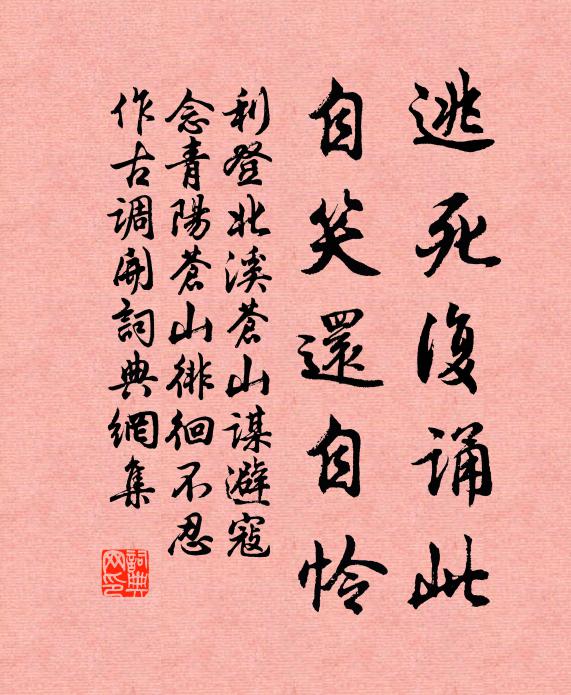 逃死復誦此
自笑還自怜
利登北溪蒼山謀避寇
念青陽蒼山徘徊不忍
作古調開詞典網集
詞典網印